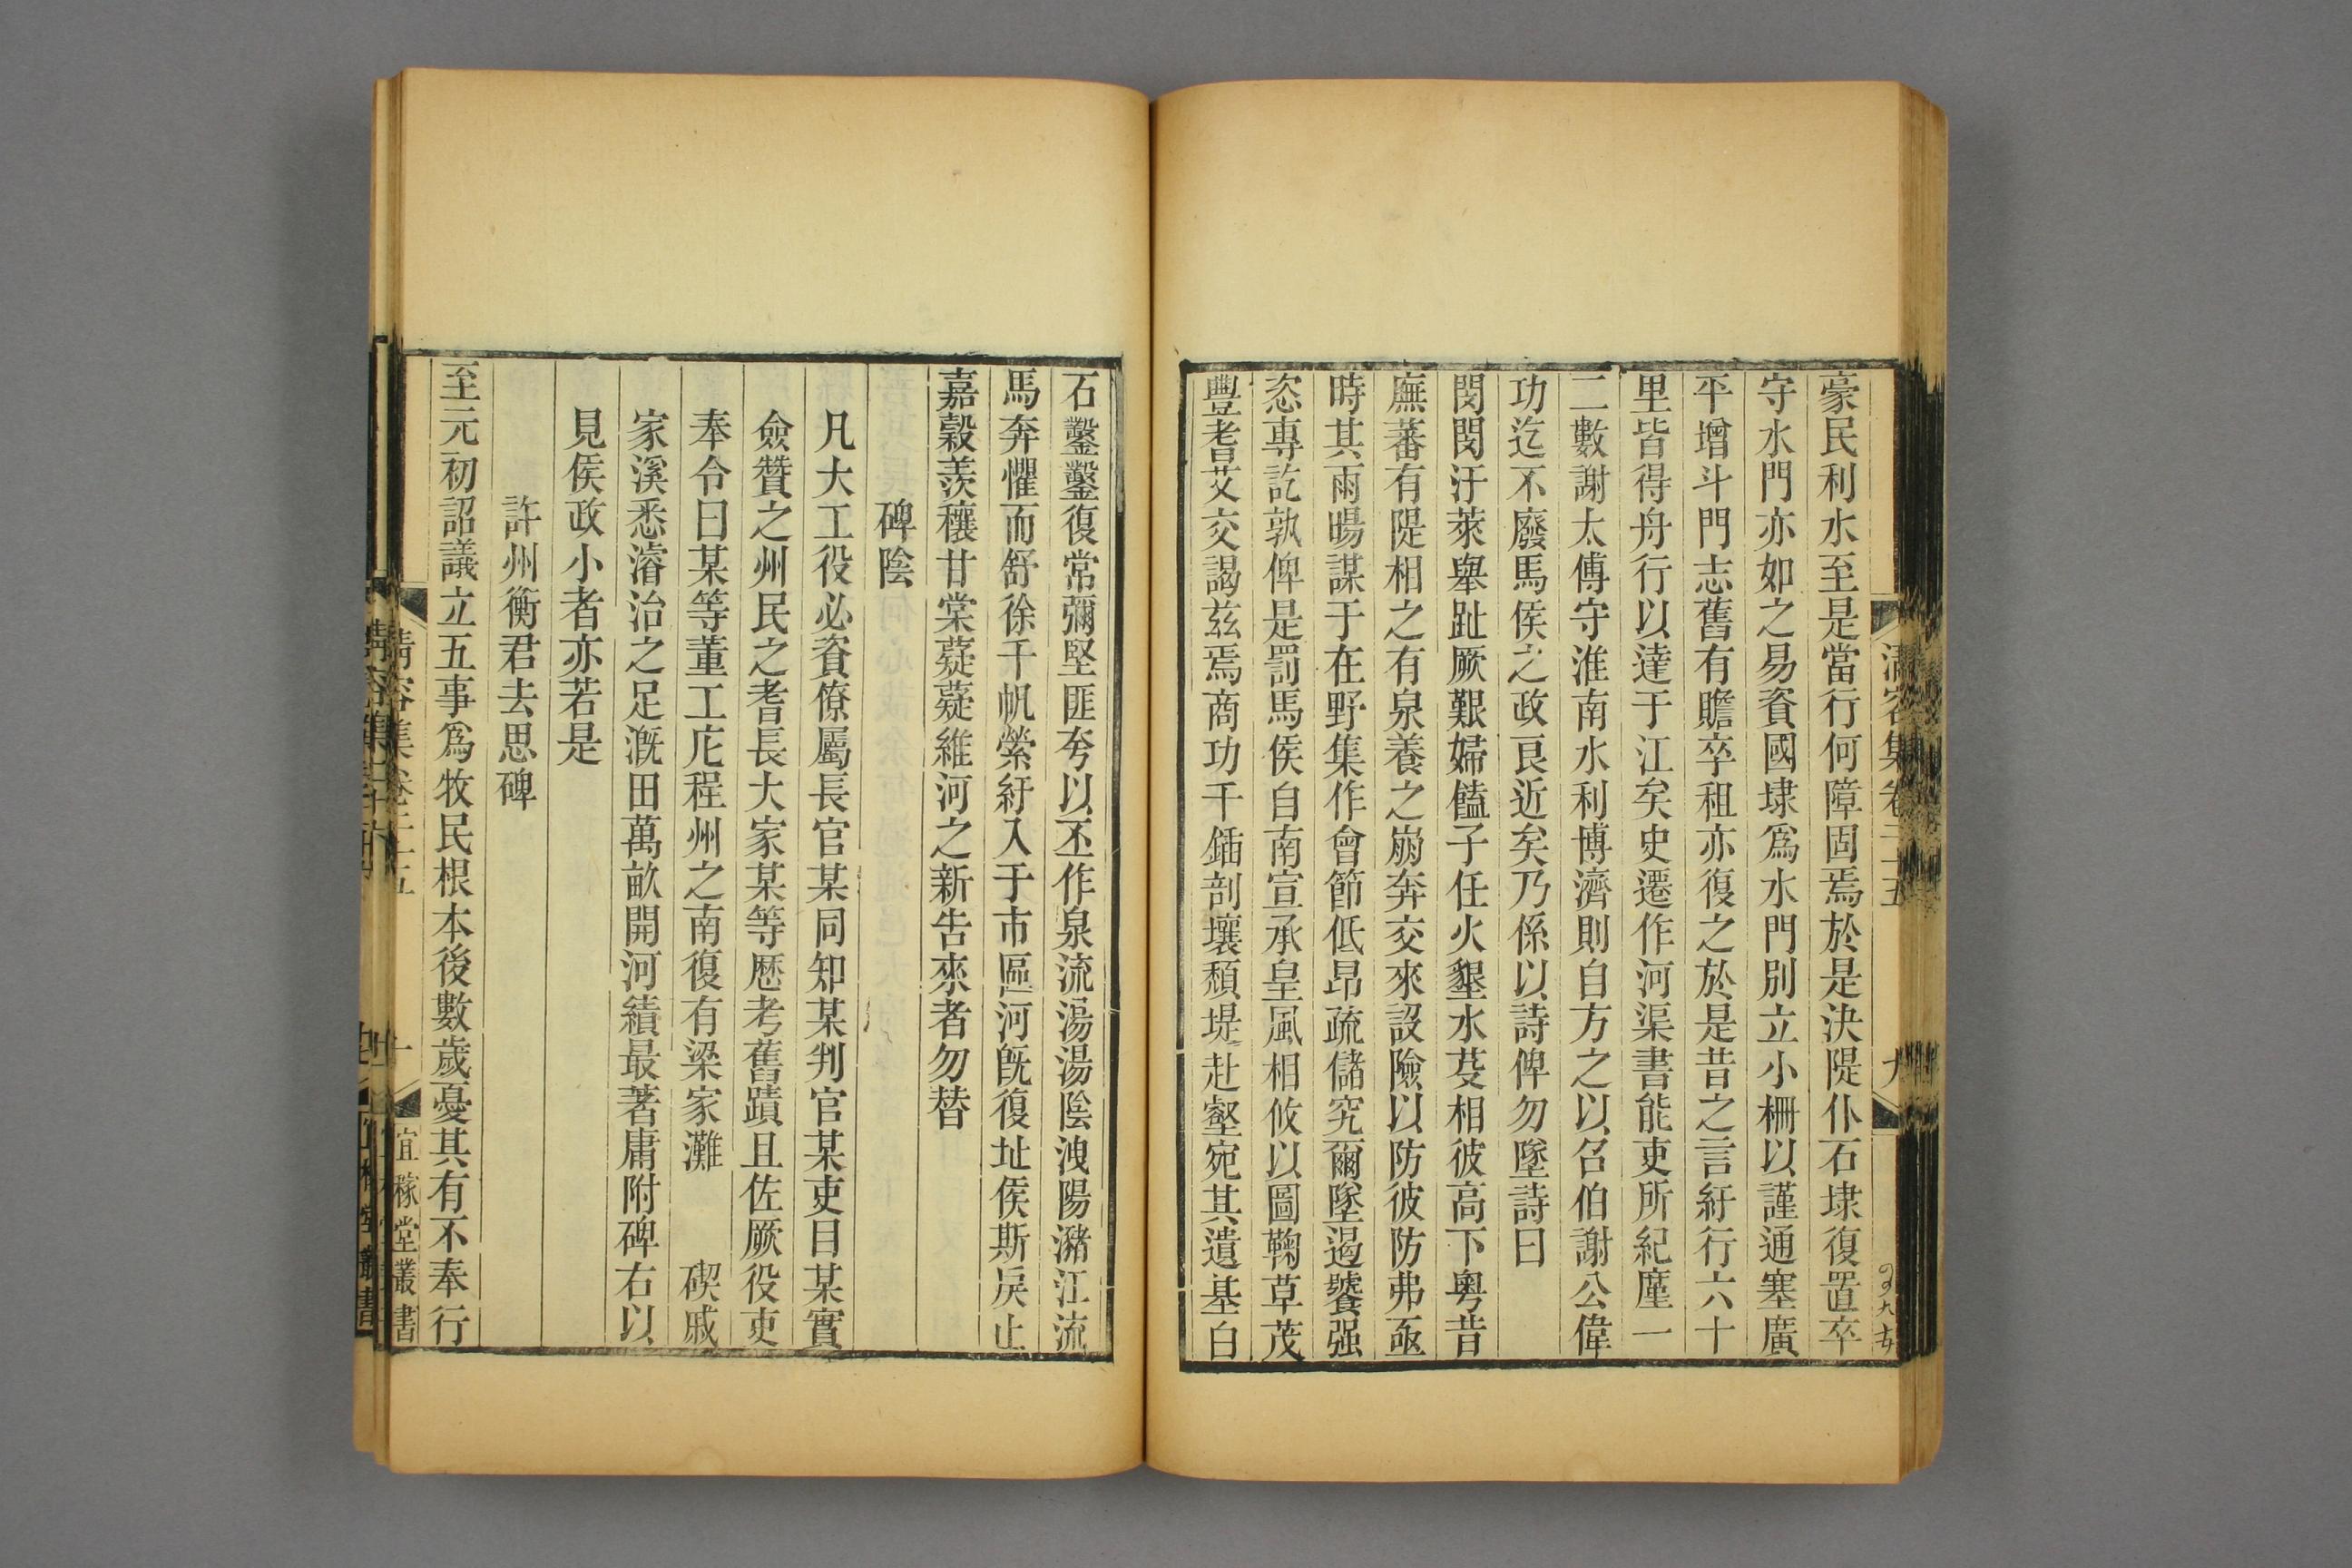 豪民利水至是當行何障固焉於是決隄仆石埭復置卒
守水門亦如之易資國埭爲水門別立小柵以謹通塞廣
平增斗門志舊有贍卒租亦復之於是昔之言紆行六十
里皆得舟行以達于江矣史遷作河渠書能吏所紀廑一
二數謝太傅守淮南水利博濟則自方之以召伯謝公偉
功迄不廢馬侯之政良近矣乃係以詩俾勿墜詩曰
閔閔汙萊舉趾厥艱婦饁子任火墾水芟相彼高下粵昔
廡蕃有隄相之有泉養之崩奔交來設險以防彼防弗亟
時其雨暘謀于在野集作會節低昂疏儲究爾墜遏饕强
恣專訖孰俾是罰馬侯自南宣承皇風相攸以圖鞠草茂
豐耆艾交謁茲焉商功千鍤剖壤頹堤赴壑宛其遺基白
清容集卷二十五
石鑿鑿復常彌堅匪夸以丕作泉流湯湯陰洩陽瀦江流
馬奔懼而舒徐千帆縈紆入于市區河旣復址侯斯戾止
嘉穀羨穰甘棠薿薿維河之新告來者勿替
碑陰
凡大工役必資僚屬長官某同知某判官某吏目某實
僉贊之州民之耆長大家某等歷考舊蹟且佐厥役吏
奉令曰某等董工庀程州之南復有梁家灘 碶戚
家溪悉濬治之足漑田萬畝開河績最著庸附碑右以
見侯政小者亦若是
許州衡君去思碑
至元初詔議立五事爲牧民根本後數歲憂其有不奉行
清容集卷二十五
宜稼堂叢書